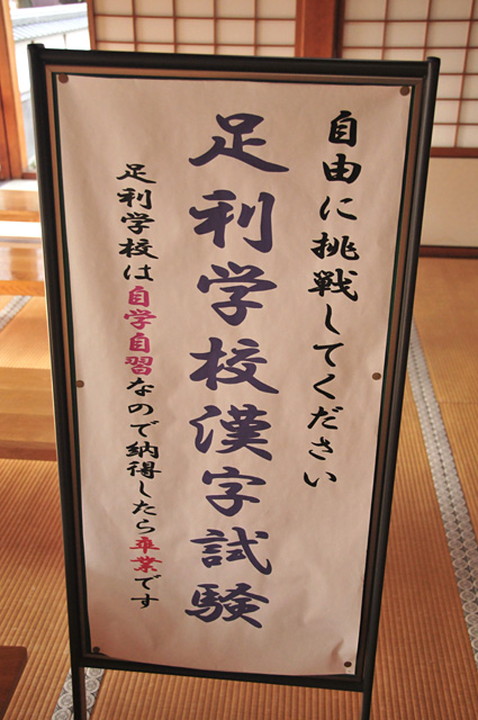 自由に挑戦してください
足利学校漢字試験
足利学校は自学自習なので納得したら卒業です